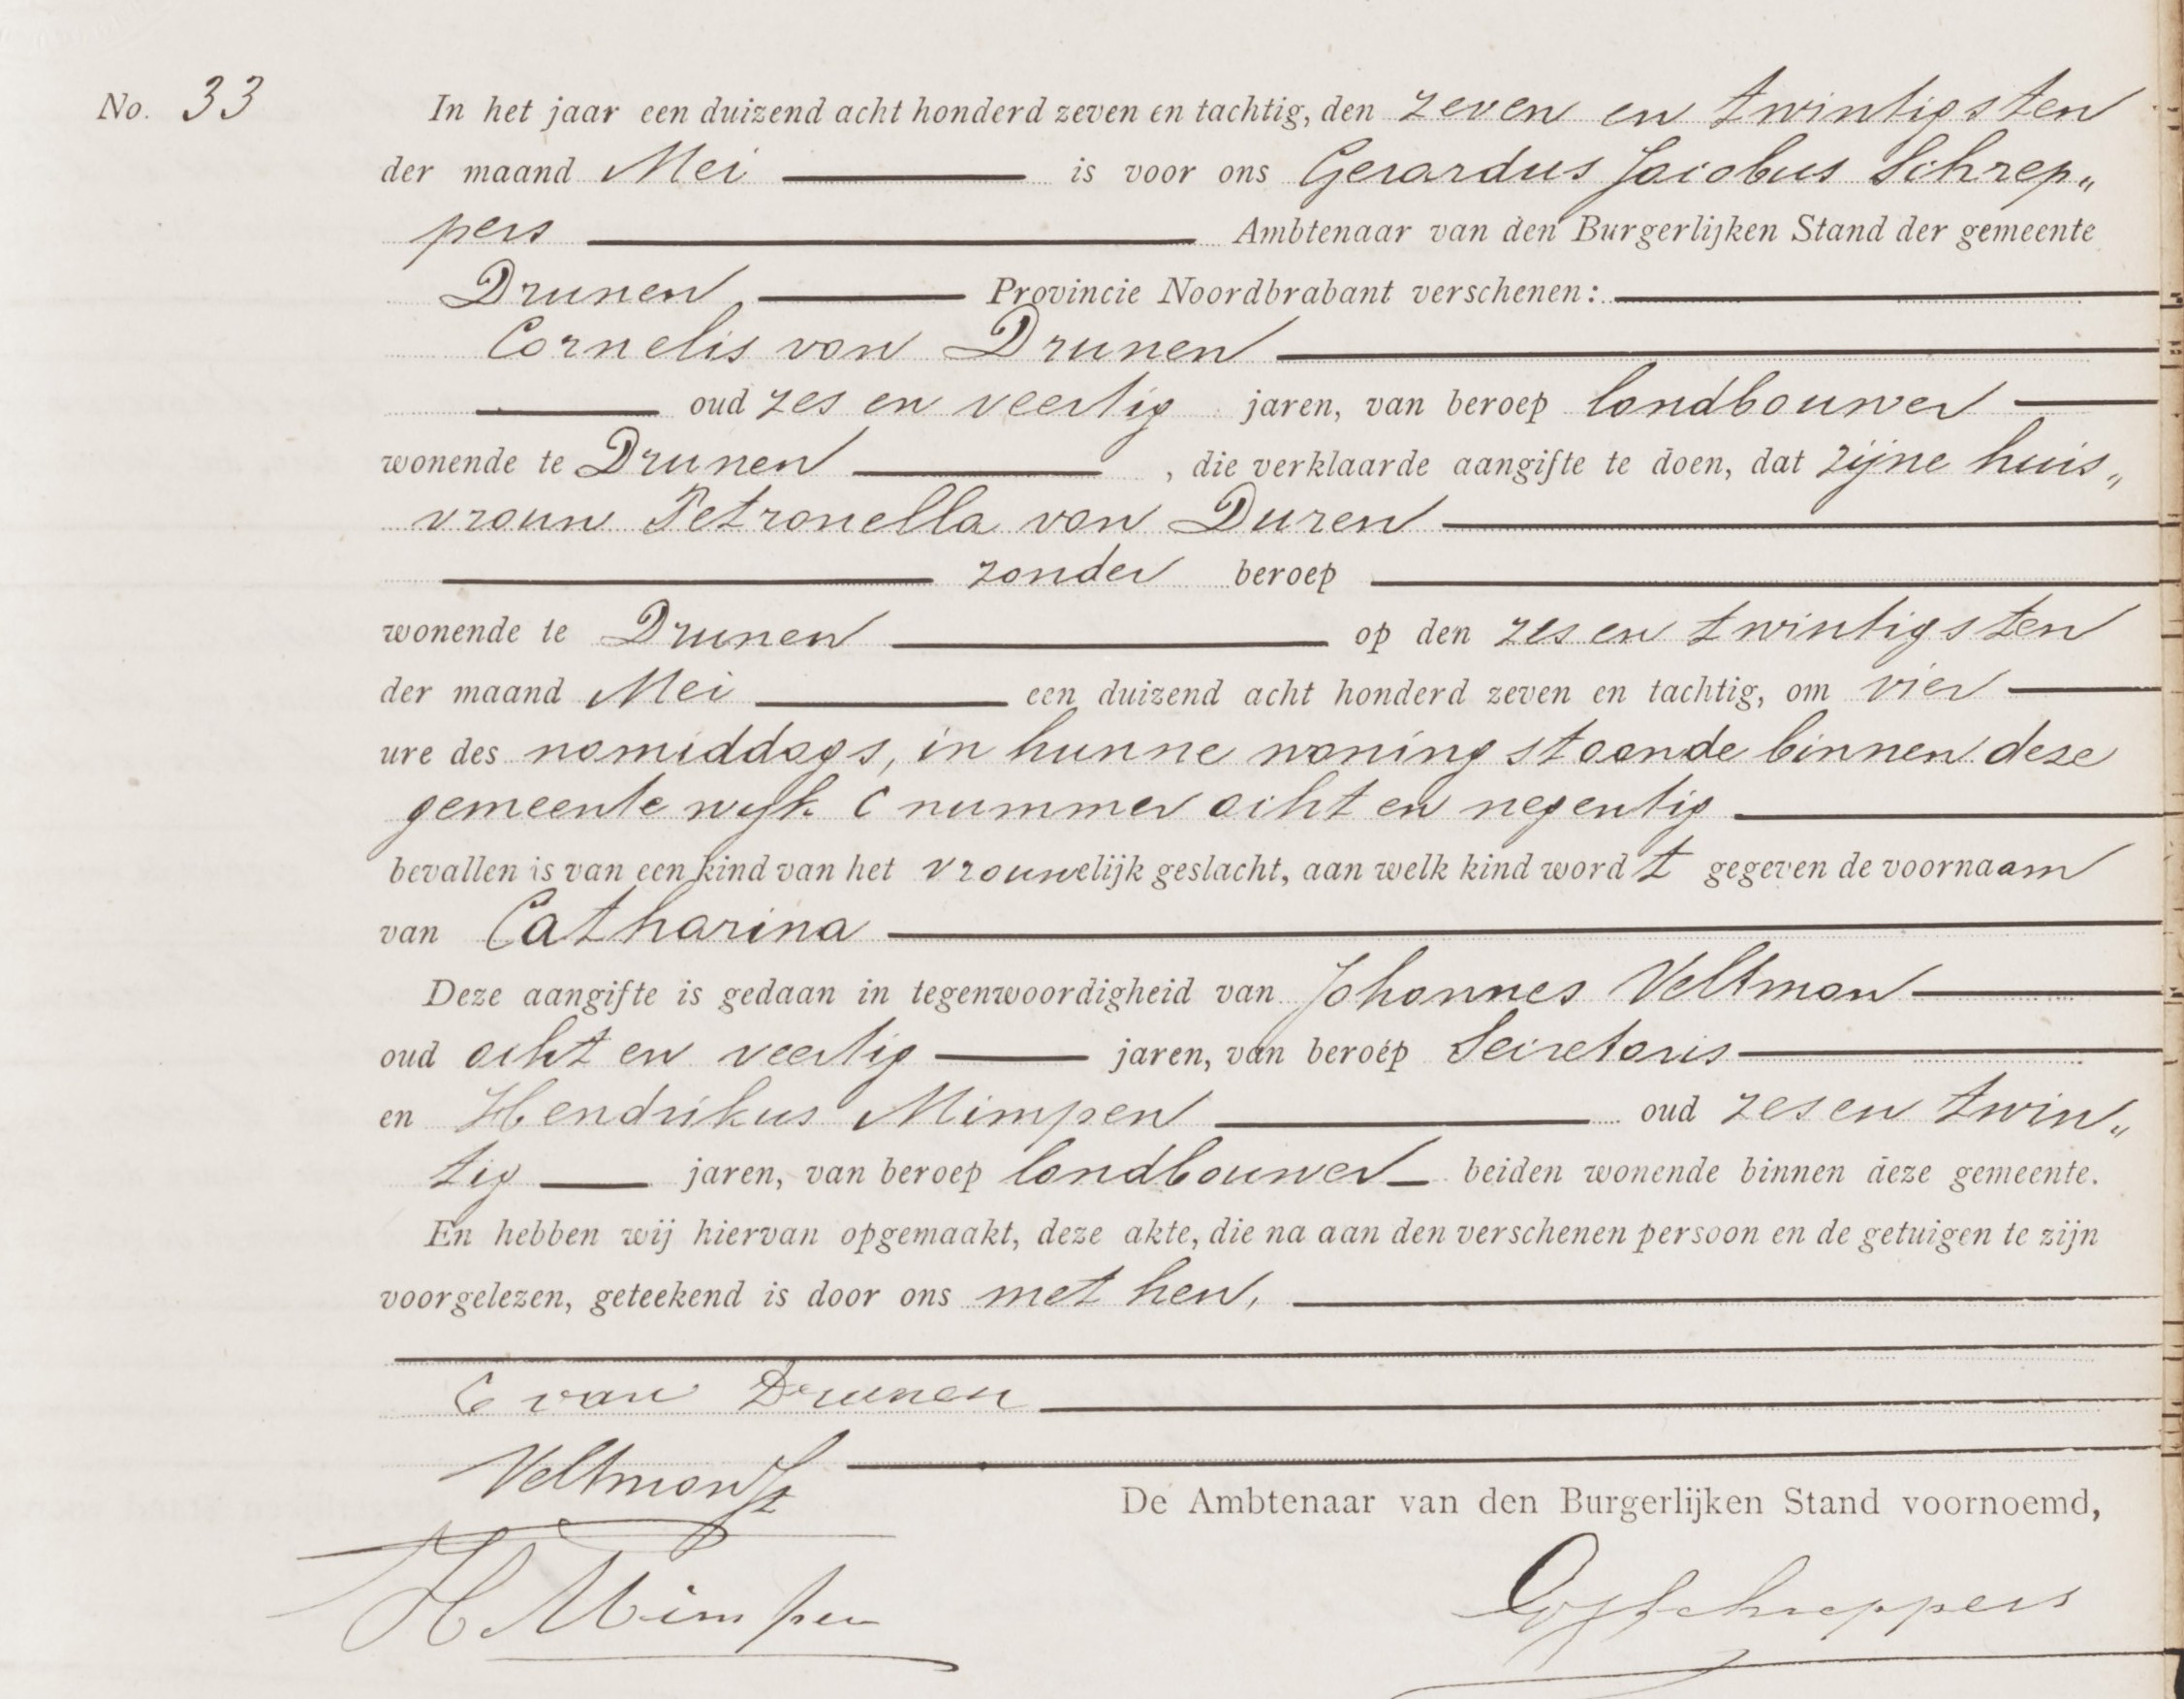 No. 33
In het jaar een duizend acht honderd zeven en tachtig, den zeven en twintigsten
der maand Mei is voor ons Gerardus Jacobus Schrep„
pers Ambtenaar van den Burgerlijken Stand der gemeente
Drunen Provincie Noordbrabant verschenen:
Cornelis van Drunen
oud zes en veertig jaren, van beroep landbouwer
wonende te Drunen , die verklaarde aangifte te doen, dat zijne huis„
vrouw Petronella van Duren
zonder beroep
wonende te Drunen op den zes en twintigsten
der maand Mei een duizend acht honderd zeven en tachtig, om vier
ure des namiddags, in hunne woning staande binnen deze
gemeente wijk C nummer acht en negentig
bevallen is van een kind van het vrouwelijk geslacht, aan welk kind wordt gegeven de voornaam
van Catharina
Deze aangifte is gedaan in tegenwoordigheid van Johannes Veltman
oud acht en veertig jaren, van beroep Secretaris
en Hendrikus Mimpen oud zes en twin„
tig jaren, van beroep landbouwer beiden wonende binnen deze gemeente.
En hebben wij hiervan opgemaakt, deze akte, die na aan den verschenen persoon en de getuigen te zijn
voorgelezen, geteekend is door ons met hen,
C van Drunen
Veltman
De Ambtenaar van den Burgerlijken Stand voornoemd,
H Mimpen
GJSchreppers